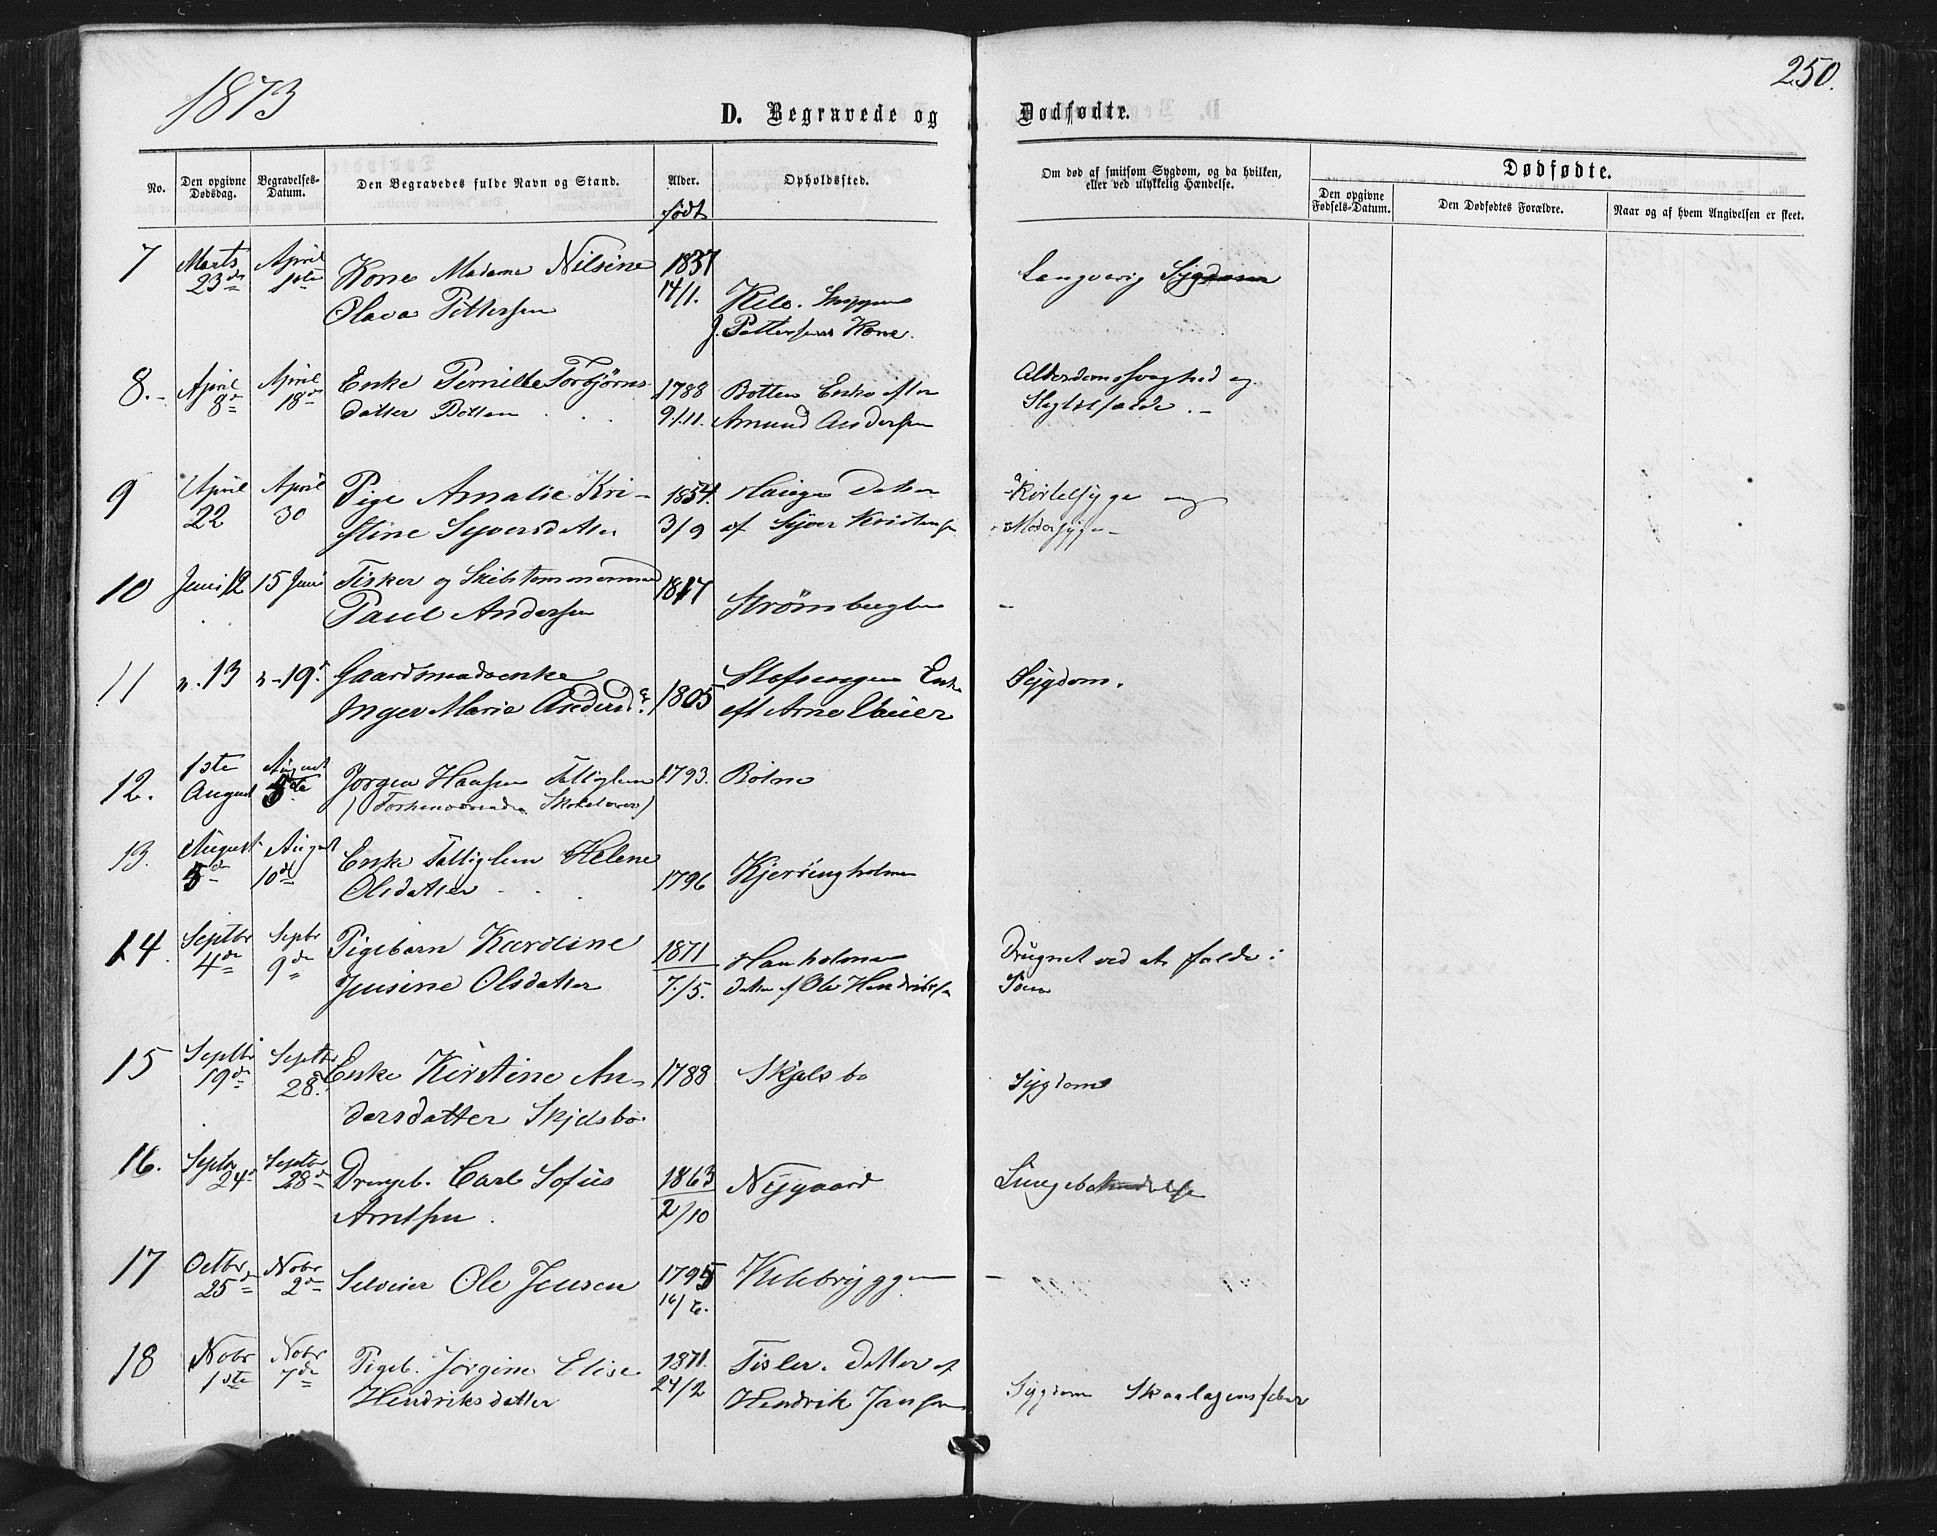 1873
250.
D. Begravede og Dødfødte.
No. Den opgivne Dødsdag. Begravelses-Datum. Den Begravedes fulde Navn og Stand. Alder. Opholdssted. Om død af smitsom Sygdom, og da hvilken, eller ved ulykkelig Hændelse. Dødfødte.
Den opgivne Fødsels-Datum. Den Dødfødtes Forældre. Naar og af hvem Angivelsen er skeet.
født
7 Marts April Kone Madame Nilsine 1837 Langvarig Sygdom
23de 1ste Olava Pettersen 14/1. Kile. Skipper
J. Pettersens Kone.
8. April April Enke Pernille Torbjørns 1788 Botten Enke efter Alderdomssvaghed og
8de 18de datter Botten 9/11. Amund Andersen
9 April April Pige Amalie Kri- 1854. Haugen Datter Kirtelsyge og
22 30 stine Syversdatter 3/9 af Syver Kristensen Modersyge
10 Juni 12 15 Juni Fisker og Skibstømmermand 1817
Paul Andersen Strømbugten -
11 " 13 " 19d Gaardmandsenke Enke Sygdom.
Inger Marie Andersd. 1805 eft Arne
12. 1ste August Jørgen Hansen Fattiglem 1793. Botne
August 5te (Forhenværende Skolelærer)
13. August August Enke Fattiglem Helene
5de 10de Olsdatter 1796 Kjerringholmen
14. Septbr Sepbr Pigebarn Karoline 1871 Hanholmen Drugnet ved at falde i
4de 9de Jensine Olsdatter 7/5. datter af Ole Hendriksen Søen
15 Septbr Septbr Enke Kirstine An- 1788 Skjelsbo Sygdom
19de 28d dersdatter Skjelsbo.
16. Septbr Septbr Drengeb. Carl Sofus 1863 Nygaard Lungebetændelse
24d 28de Arntsen. 2/10
17 Octbr Nobr Selveier Ole Jensen 1795 Kilebryggen -
25de 2de 16/6.
18 Nobr Nobr Pigeb. Jørgine Elise 1871. Tisler. Datter af
1ste 7de Hendriksdatter 24/2 Hendrik Jansen Sygdom Skarlagensfeber